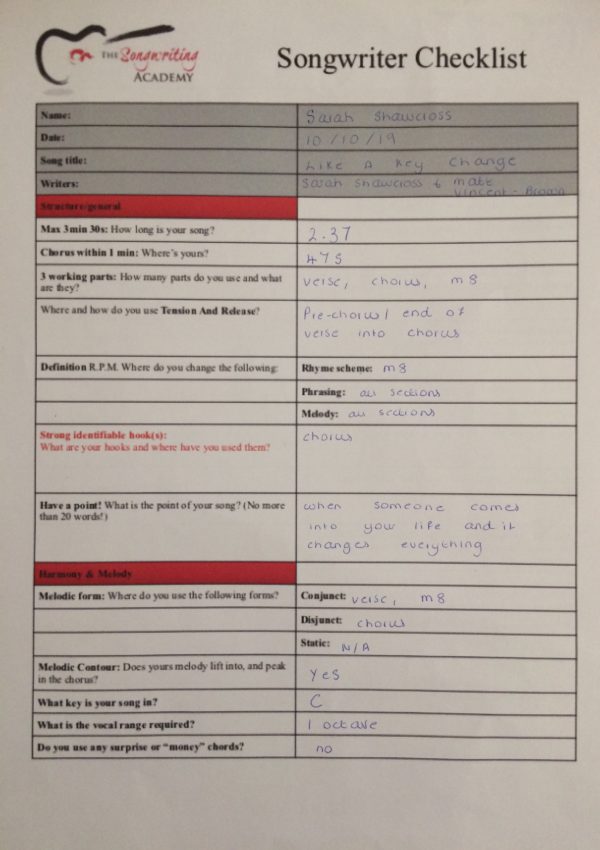 THE Songwriting
ACADEMY
Songwriter Checklist
Name: Sarah Shawcross
Date: 10/10/19
Song title: Like A Key Change
Writers: Sarah Shawcross & Matt
Vincent-Brown
Structure/general
Max 3min 30s: How long is your song? 2.37
Chorus within 1 min: Where's yours? 47s
3 working parts: How many parts do you use and what
are they?
verse, chorus, m8
Where and how do you use Tension And Release?
Pre-chorus / end of
verse into chorus
Definition R.P.M. Where do you change the following: Rhyme scheme: m8
Phrasing: all sections
Melody: all sections
Strong identifiable hook(s):
What are your hooks and where have you used them?
chorus
Have a point! What is the point of your song? (No more
than 20 words!)
when someone comes
into your life and it
changes everything
Harmony & Melody
Melodic form: Where do you use the following forms? Conjunct: verse, m8
Disjunct: chorus
Static: N/A
Melodic Contour: Does yours melody lift into, and peak
in the chorus?
Yes
What key is your song in? C
What is the vocal range required? 1 octave
Do you use any surprise or "money" chords? no